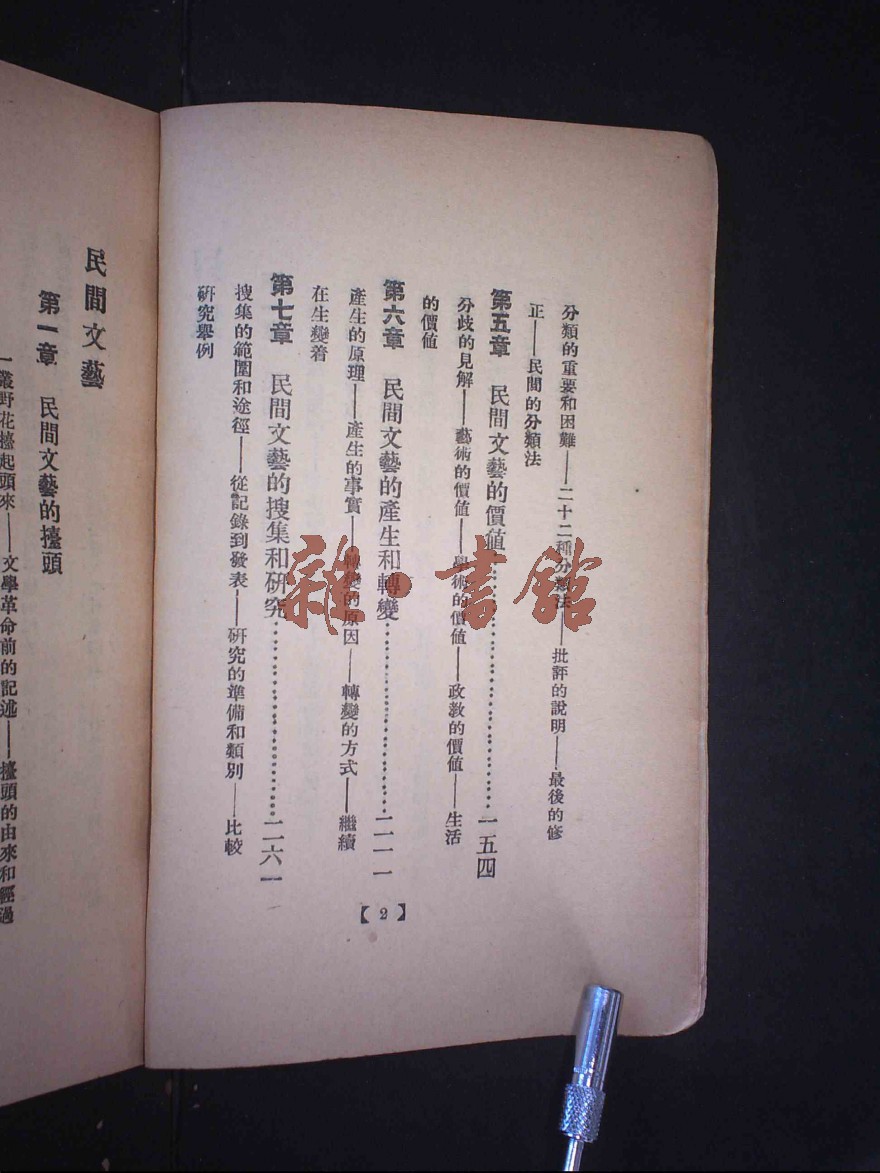 分類的重要和困難——二十二種分類法——批評的說明——最後的修
正——民間的分類法
第五章 民間文藝的價値……………………一五四
分歧的見解——藝術的價値——學術的價値——政教的價値——生活
的價値
第六章 民間文藝的產生和轉變……………………二一一
產生的原理——產生的事實——轉變的原因——轉變的方式——繼續
在生變着
第七章 民間文藝的搜集和研究……………………二六一
搜集的範圍和途徑——從記錄到發表——研究的準備和類別——比較
研究舉例
【2】
民間文藝
第一章 民間文藝的擡頭
一叢野花擡起頭來——文學革命前的記述——擡頭的由來和經過
雜·書館